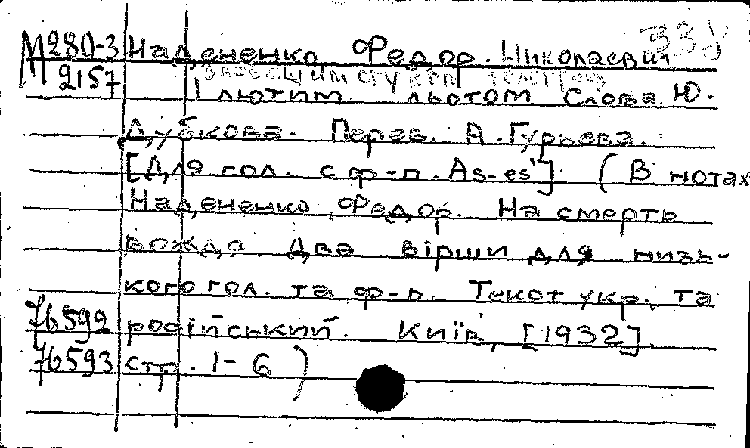 М280-3 Надененко, Федор. Николаевич 33у
2157
І лютим льотом Слова Ю.
Дубкова. Перев. А. Гурьева.
[Для гол. с ф-п. As-es'] (В нотах
Надененко, Федор. На смерть
вождя Два вірши для низь-
кого гол. та ф-п. Текст укр. та
76592 російський. Київ, [1932]
76593 стр. 1-6)